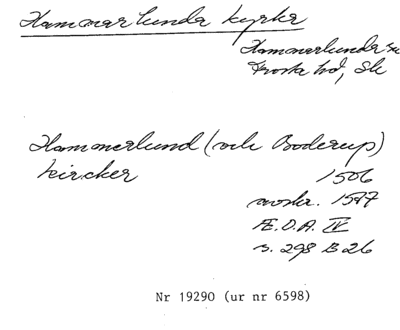 Hammarlunda kyrka
Hammarlunda sn
Frosta hd, Sk
Hammerlund (och Boderup)
kircker
1506
avskr. 1597
Æ.D.A. IV
s. 298 B 26
Nr 19290 (ur nr 6598)